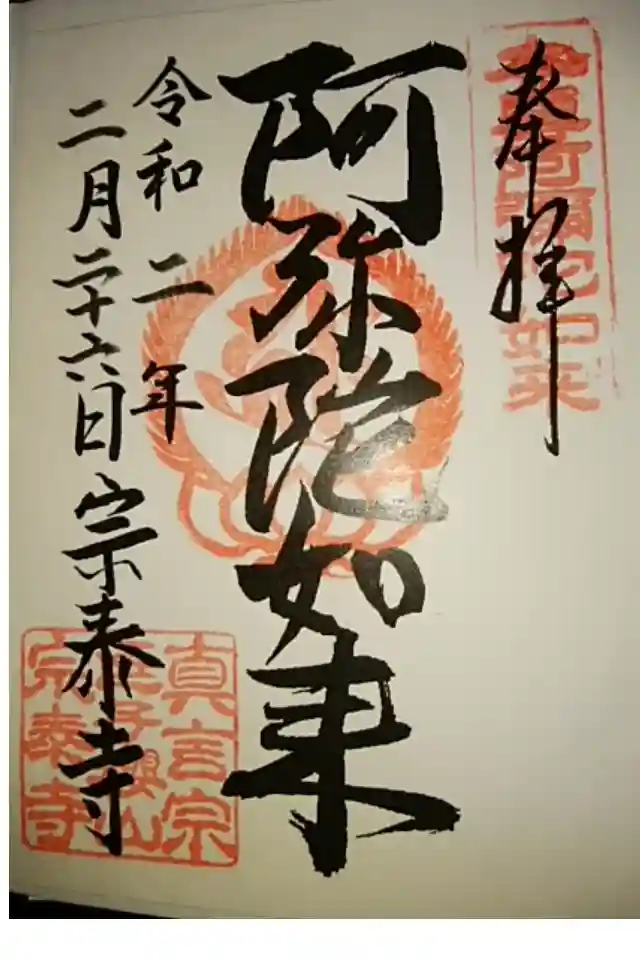 奉拝
阿弥陀如来
令和二年
二月二十六日 宗泰寺
真言宗
宗泰寺